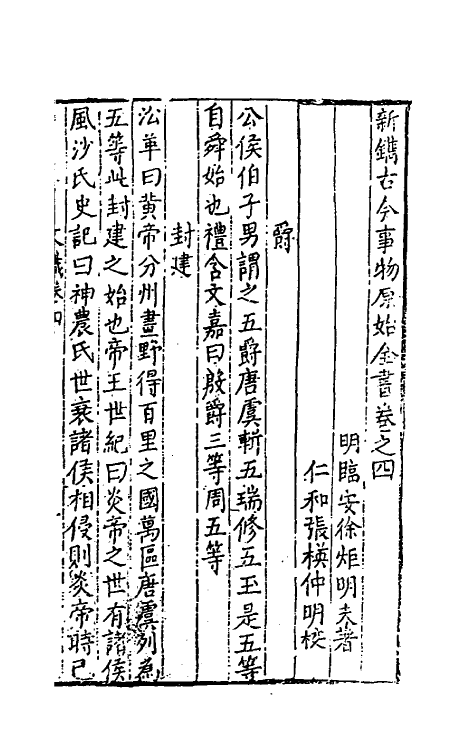 新鐫古今事物原始全書卷之四
明臨安徐炬明夫著
仁和張楧仲明校
爵
公侯伯子男謂之五爵唐虞斬五瑞修五玉是五等
自舜始也禮含文嘉曰殷爵三等周五等
封建
㳂革曰黄帝分州畫野得百里之國萬區唐虞列為
五等此封建之始也帝王世紀曰炎帝之世有諸侯
風沙氏史記曰神農氏世衰諸侯相侵則炎帝時已